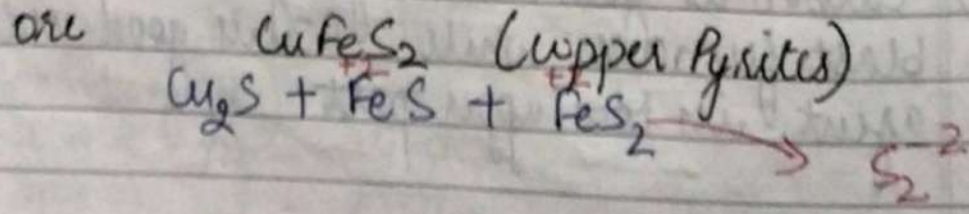 ore CuFeS₂ (Copper Pyrites)
Cu₂S + FeS + FeS₂ → S₂⁻²